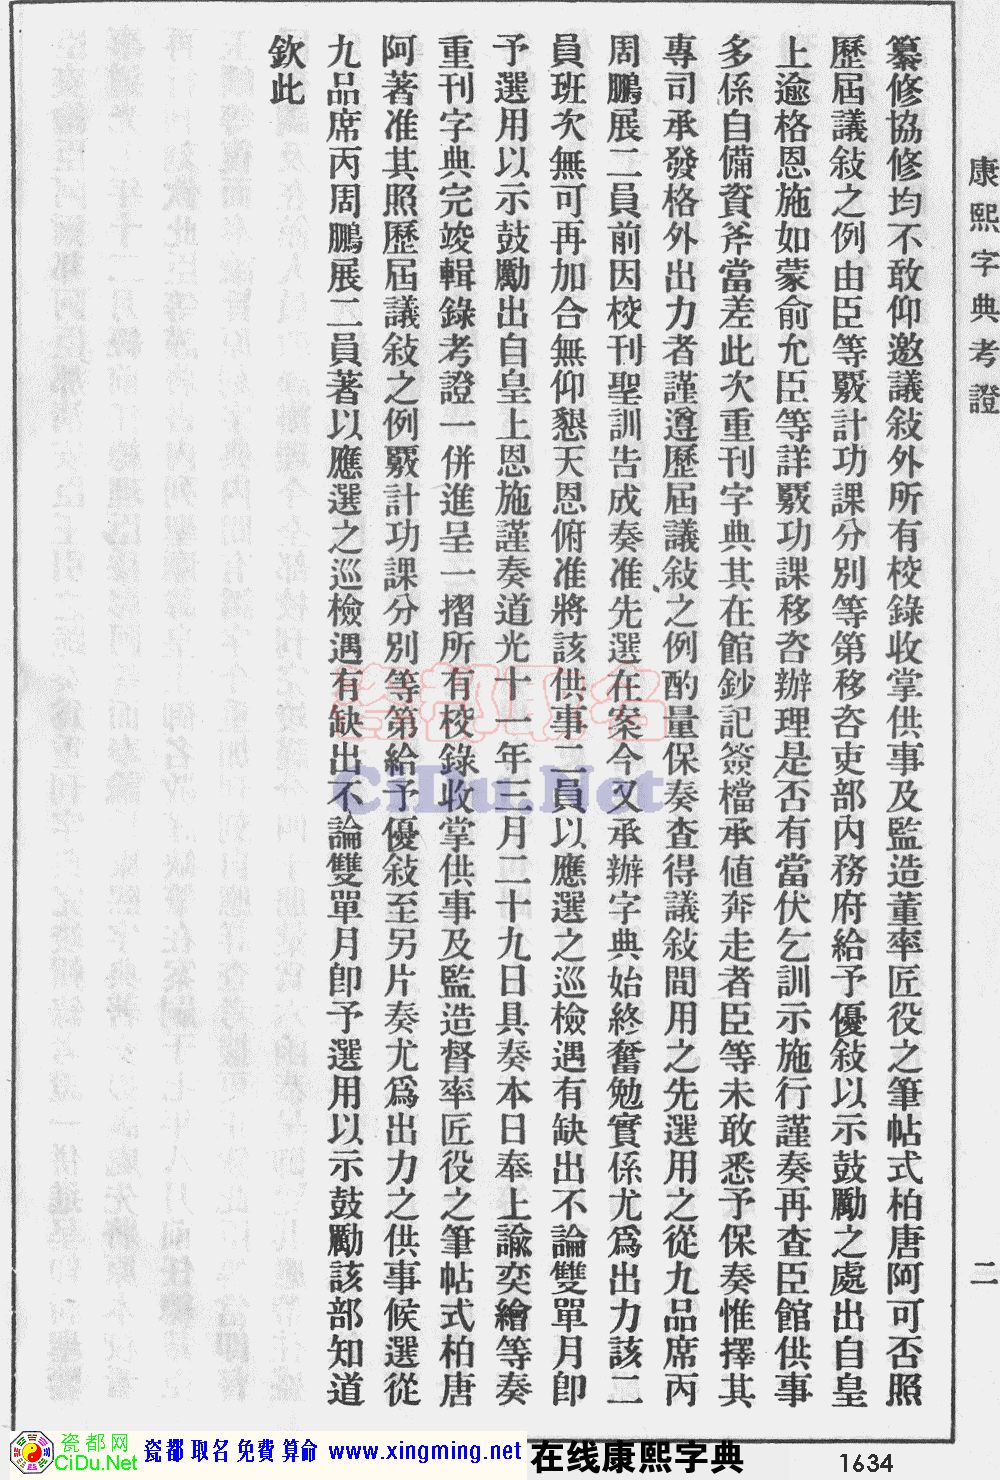 康熙字典考證
二
纂修協修均不敢仰邀議敍外所有校錄收掌供事及監造董率匠役之筆帖式柏唐阿可否照
歷屆議敍之例由臣等覈計功課分別等第移咨吏部內務府給予優敍以示鼓勵之處出自皇
上逾格恩施如蒙俞允臣等詳覈功課移咨辦理是否有當伏乞訓示施行謹奏再查臣館供事
多係自備資斧當差此次重刊字典其在館鈔記簽檔承値奔走者臣等未敢悉予保奏惟擇其
專司承發格外出力者謹遵歷屆議敍之例酌量保奏查得議敍間用之先選用之從九品席丙
周鵬展二員前因校刊聖訓告成奏准先選在案今又承辦字典始終奮勉實係尤爲出力該二
員班次無可再加合無仰懇天恩俯准將該供事二員以應選之巡檢遇有缺出不論雙單月卽
予選用以示鼓勵出自皇上恩施謹奏道光十一年三月二十九日具奏本日奉上諭奕繪等奏
重刊字典完竣輯錄考證一併進呈一摺所有校錄收掌供事及監造督率匠役之筆帖式柏唐
阿著准其照歷屆議敍之例覈計功課分別等第給予優敍至另片奏尤爲出力之供事候選從
九品席丙周鵬展二員著以應選之巡檢遇有缺出不論雙單月卽予選用以示鼓勵該部知道
欽此
瓷都取名
CiDu.Net
瓷都网
CiDu.Net
瓷都取名免費算命 www.xingming.net 在线康熙字典 1634